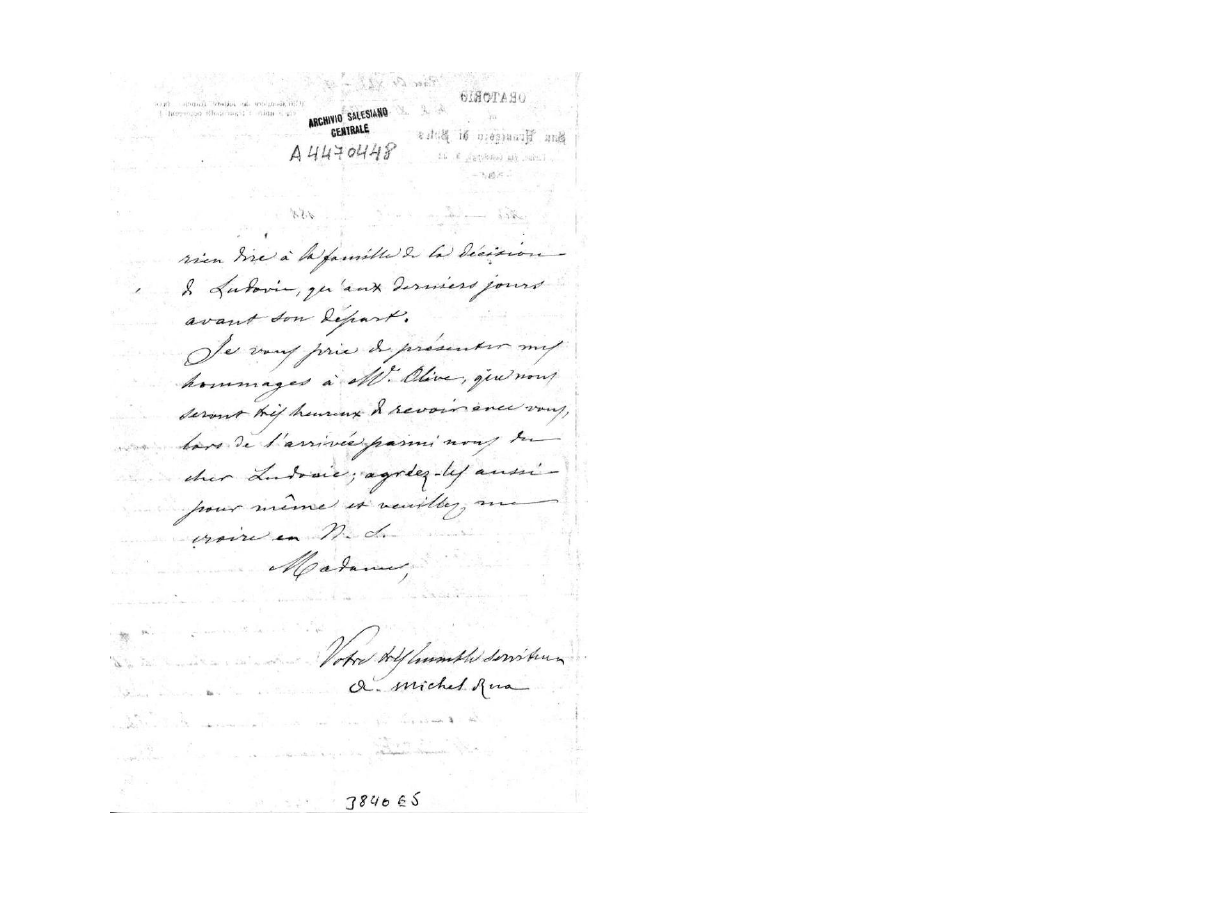 ORATORIO
San Francesco di Sales
ARCHIVIO SALESIANO
CENTRALE
A4470448
188
rien dire à la famille de la décision
de Ludovic, qu'aux derniers jours
avant son départ.
Je vous prie de présenter mes
hommages à Mr. Olive, que nous
seront très heureux de revoir avec vous,
lors de l'arrivée parmi nous du
cher Ludovic; agréez-les aussi
pour même et veuillez me
croire en N. S.
Madame,
Votre très humble serviteur
a. Michel Rua
3840 E5